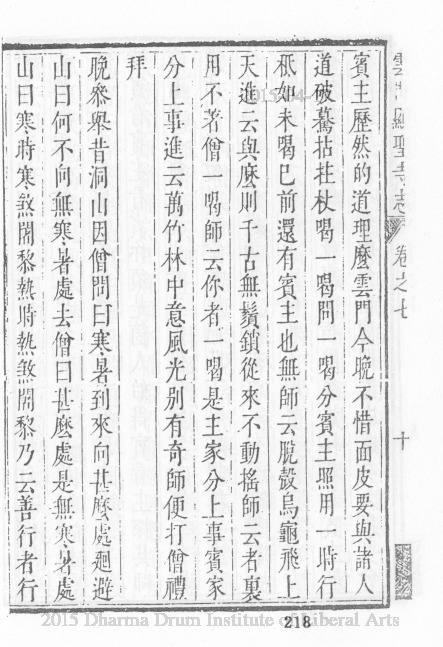 雲門顯聖寺志 卷之七 十
賓主歷然的道理麼雲門今晚不惜面皮要與諸人
道破驀拈拄杖喝一喝問一喝分賓主照用一時行
秖如未喝已前還有賓主也無師云脫殼烏龜飛上
天進云與麼則千古無鬚鎖從來不動搖師云者裏
用不著僧一喝師云你者一喝是主家分上事賓家
分上事進云萬竹林中意風光別有奇師便打僧禮
拜
晚參舉昔洞山因僧問曰寒暑到來向甚麼處廻避
山曰何不向無寒暑處去僧曰甚麼處是無寒暑處
山曰寒時寒煞闍黎熱時熱煞闍黎乃云善行者行
2015 Dharma Drum Institute of Liberal Arts
218